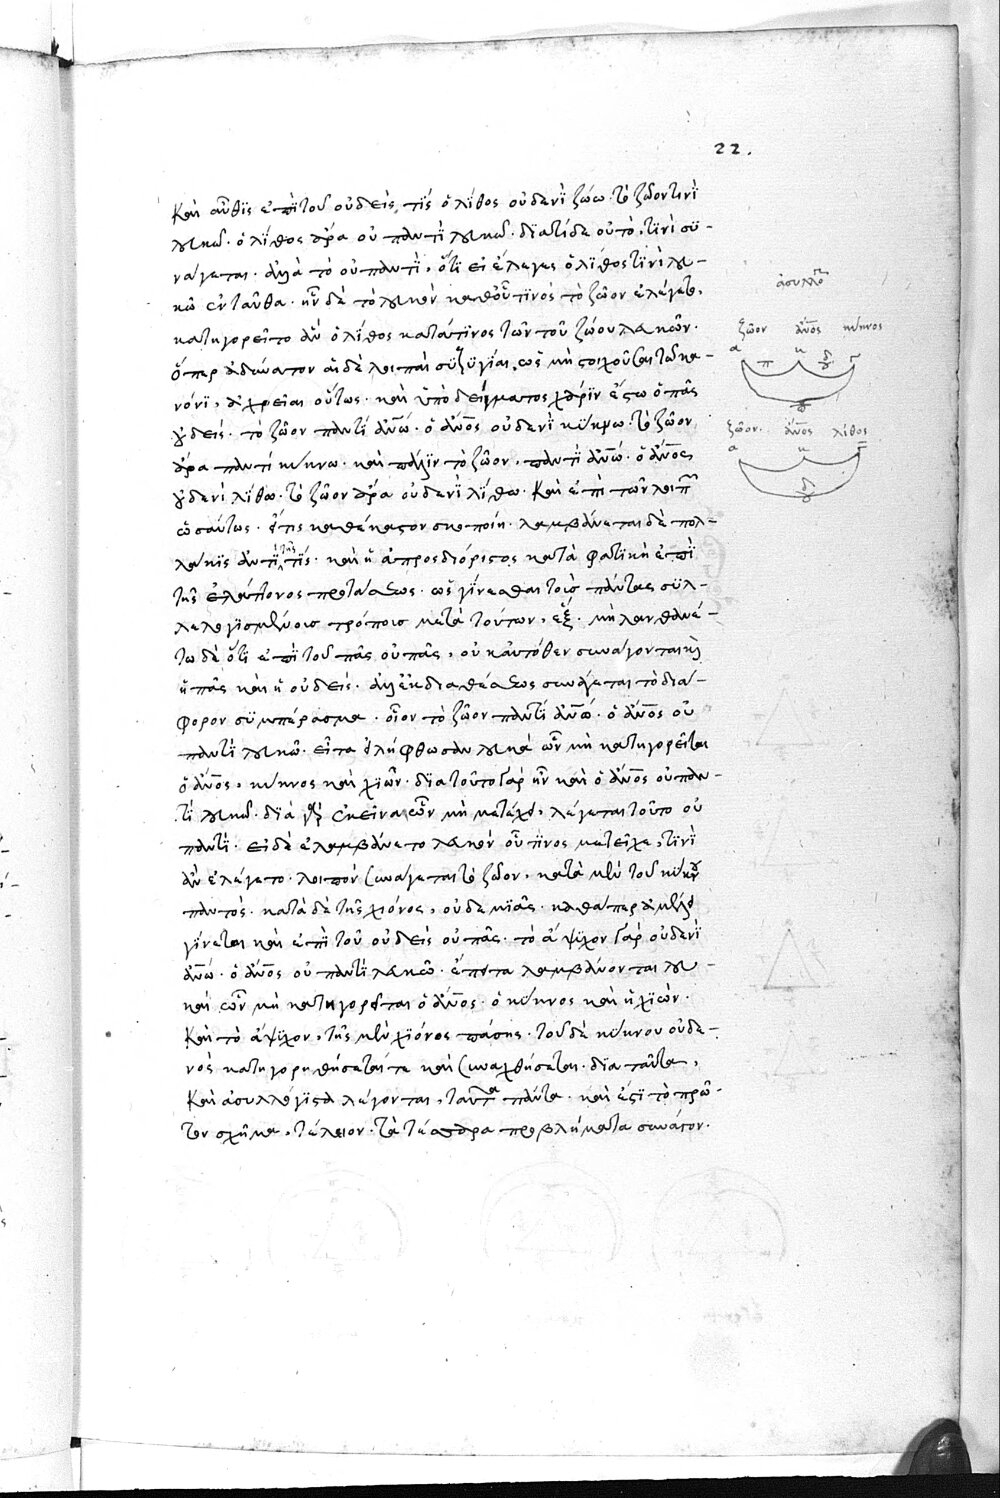 22.
Καὶ αὖθϊς ἐπὶ τοῦ οὐδείς, τὶς ὁ λίθος οὐδενὶ ζώω· τὸ ζῶον τινὶ
λευκῶ· ὁ λίθος ἄρα οὐ παντὶ λευκῶ· διατίδε οὐ τὸ, τινὶ συ-
νάγεται· ἀλλὰ τὸ οὐ παντὶ, ὅτι εἰ ἔλεγες ὁ λίθος τινὶ λευ-
κῶ ἐνταῦθα· ἦν δὲ τὸ λευκὸν καθ' οὗ τινὸς τὸ ζῶον ἐλέγετο,
κατηγορεῖτο ἂν ὁ λίθος κατά τινος τῶν τοῦ ζώου λευκῶν·
ὅπερ ἀδύνατον αἱ δὲ λοιπαὶ συζυγίαι, ὡς μὴ στοιχοῦσαι τῶ κα-
νόνι, ἀχρεῖαι οὕτως· καὶ ὑποδείγματος χάριν ἔστω ὁ πᾶς
οὐδείς· τὸ ζῶον παντὶ ἀνῶ· ὁ ἄνος οὐδενὶ κύκνω· τὸ ζῶον
ἄρα παντὶ κύκνω· καὶ πάλιν τὸ ζῶον, παντὶ ἀνῶ· ὁ ἄνος
οὐδενὶ λίθω· τὸ ζῶον ἄρα οὐδενὶ λίθω· Καὶ ἐπὶ τῶν λοιπ
ὡσαύτως· εἴ τις καθέκαστον σκοποίη· λαμβάνεται δὲ πολ-
λάκις ἀντὶ τῆς τίς· καὶ ἡ ἀπροσδιόριστος κατὰ φατικὴ ἐπὶ
τῆς ἐλάττονος προτάσεως· ὡς γίνεσθαι τοὺς πάντας συλ-
λελογισμένους τρόπους μετὰ τούτων, ἕξ· μὴ λανθανέ-
τω δὲ ὅτι ἐπὶ τοῦ πᾶς οὐ πᾶς, οὐκ αὐτόθεν συνάγονται
ἢ πᾶς καὶ ἢ οὐδείς· ἀλλ' ἐκδιαθέσεως συνάγεται τὸ διά-
φορον συμπέρασμα· οἷον τὸ ζῶον παντὶ ἀνῶ· ὁ ἄνος οὐ
παντὶ λευκῶ· εἶτα ἐλήφθωσαν λευκὰ ὧν μὴ κατηγορεῖται
ὁ ἄνος, κύκνος καὶ χιών· διὰ τοῦτο γὰρ ἦν καὶ ὁ ἄνος οὐ παν-
τὶ λευκῶ· διὰ γὰρ ἐκεῖνα ὧν μὴ κατέχει, λέγεται τοῦτο οὐ
παντὶ· εἰ δὲ ἐλαμβάνετο λευκὸν οὗ τινος κατεῖχε, τινὶ
ἂν ἐλέγετο· λοιπὸν συνάγεται τὸ ζῶον, κατὰ μὲν τοῦ κύκνου
παντός· κατὰ δὲ τῆς χιόνος, οὐδεμιᾶς· καθάπερ ἀμέλει
γίνεται καὶ ἐπὶ τοῦ οὐδεὶς οὐ πᾶς· τὸ ἄψυχον γὰρ οὐδενὶ
ἀνῶ· ὁ ἄνος οὐ παντὶ λευκῶ· ἔπειτα λαμβάνονται λευ-
κὰ ὧν μὴ κατηγορεῖται ὁ ἄνος· ὁ κύκνος καὶ ἡ χιών·
Καὶ τὸ ἄψυχον, τῆς μὲν χιόνος πάσης· τοῦ δὲ κύκνου οὐδε-
νὸς κατηγορηθήσεταί τε καὶ συναχθήσεται· διὰ ταῦτα,
Καὶ ἀσυλλόγιστα λέγονται, ταῦτα πάντα· καὶ ἔστι τὸ πρῶ-
τον σχῆμα, τέλειον· τὰ τέσσαρα προβλήματα συνάγον·
ἀσυλλο
ζῶον ἄνος κύκνος
ζῶον· ἄνος λίθος